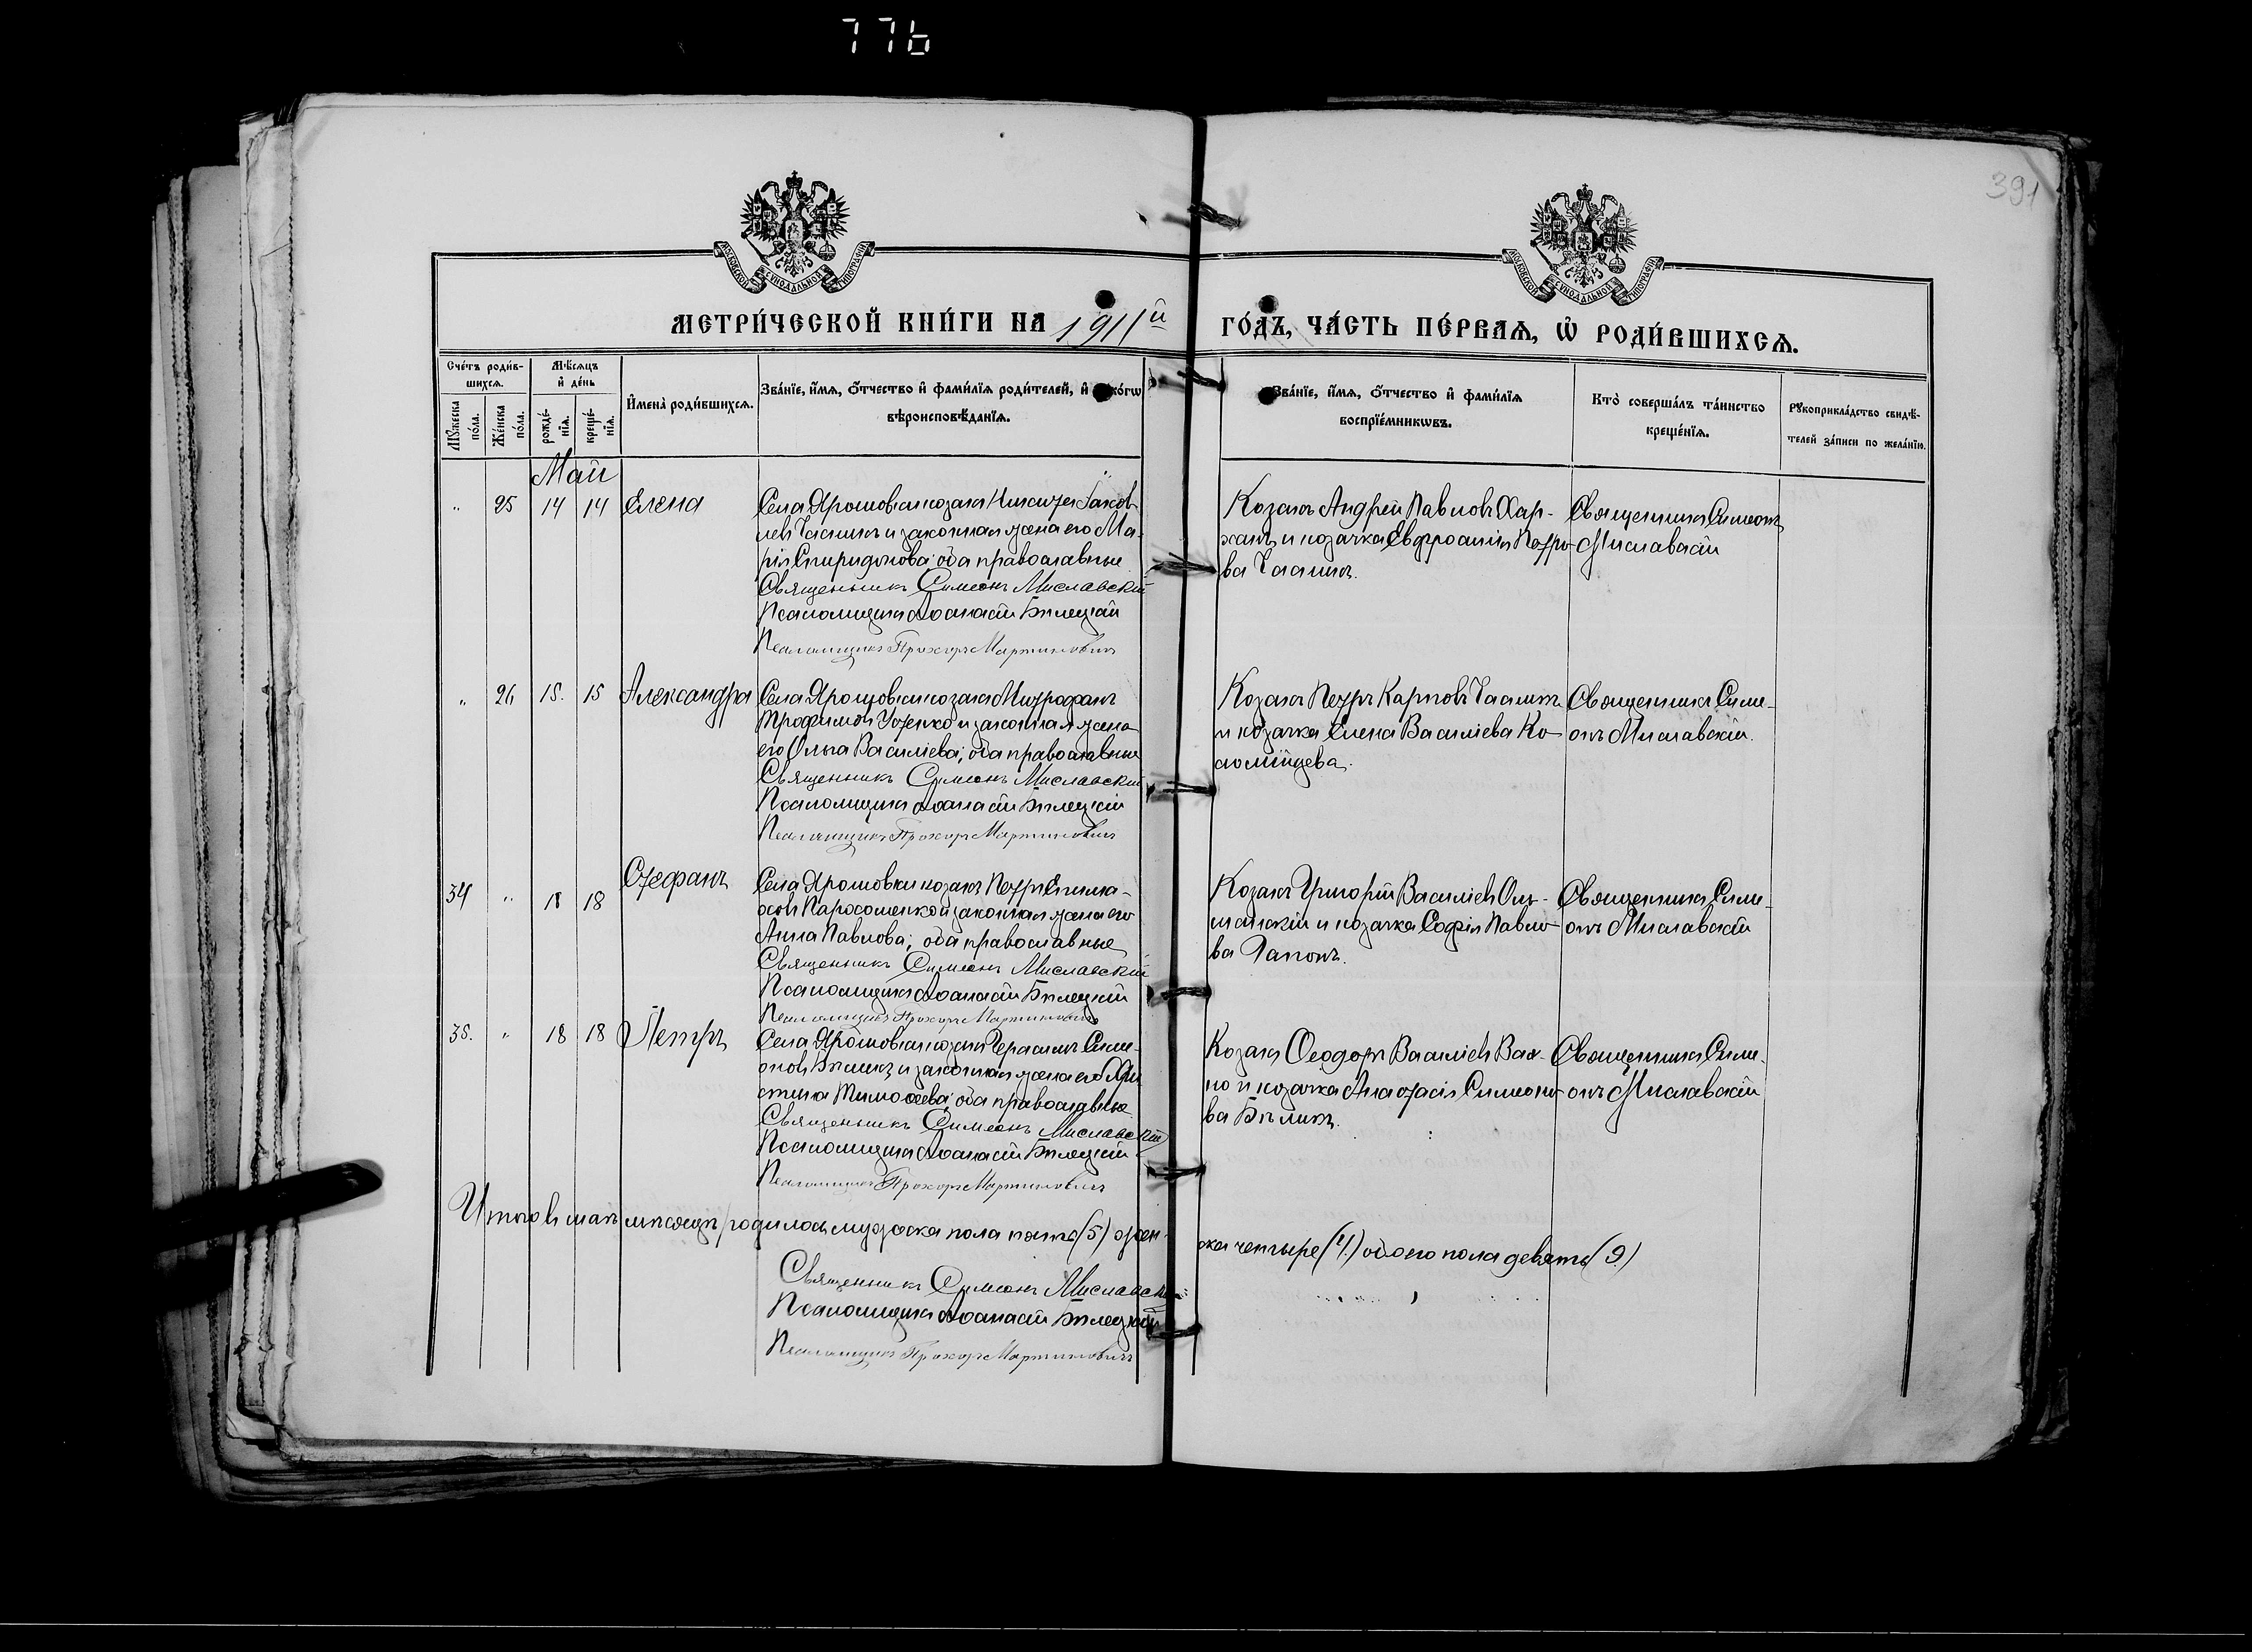 776
391
МОСКОВСКОЙ СѴНОДАЛЬНОЙ ТИПОГРАФІИ
МОСКОВСКОЙ СѴНОДАЛЬНОЙ ТИПОГРАФІИ
МЕТРИ́ЧЕСКОЙ КНИ́ГИ НА 1911й ГО́ДЪ, ЧА́СТЬ ПЕ́РВАѦ, Ѡ҆ РОДИ́ВШИХСѦ.
Сче́тъ роди́в-
шихсѧ.
Мꙋ́жеска по́ла.
Же́нска по́ла.
Мѣ́сѧцъ
и҆ де́нь
рожде́-
нїѧ.
креще́-
нїѧ.
И҆мена̀ роди́вшихсѧ.
Зва́нїе, и҆́мѧ, ѻ҆́тчество и҆ фами́лїѧ роди́телей, и҆ како́гѡ
вѣроисповѣ́данїѧ.
Зва́нїе, и҆́мѧ, ѻ҆́тчество и҆ фами́лїѧ
воспрїе́мникѡвъ.
Кто̀ соверша́лъ та́инство
креще́нїѧ.
Рꙋкоприкла́дство свидѣ́-
телей за́писи по жела́нїю.
Май
" 25 14 14 Елена
Села Ярошовки козакъ Никита Іаков-
левъ Чаликъ и законная жена его Ма-
рія Спиридонова; оба православные
Священникъ Симеонъ Миславскій
Псаломщикъ Аѳанасій Бѣлецкій
Псаломщикъ Прохоръ Мартиновичъ
Козакъ Андрей Павловъ Хар-
ханъ и козачка Евфросинія Петро-
ва Чаликъ.
Священникъ Симеонъ
Миславскій
" 26 15. 15 Александра
Села Ярошовки козакъ Митрофанъ
Трофимовъ Устенко и законная жена
его Ольга Василіева; оба православные
Священникъ Симеонъ Миславскій
Псаломщикъ Аѳанасій Бѣлецкій
Псаломщикъ Прохоръ Мартиновичъ
Козакъ Петръ Карповъ Чаликъ
и козачка Елена Василіева Ко-
ломійцева.
Священникъ Симе-
онъ Миславскій.
34 " 18 18 Стефанъ
Села Ярошовки козакъ Петръ
Пархоменко и законная жена его
Анна Павлова; оба православные
Священникъ Симеонъ Миславскій
Псаломщикъ Аѳанасій Бѣлецкій
Псаломщикъ Прохоръ Мартиновичъ
Козакъ Григорій Василіевъ Оль-
шанскій и козачка Софія Павло-
ва Гапонъ.
Священникъ Симе-
онъ Миславскій
35. " 18 18 Петръ
Села Ярошовки козакъ Герасимъ Симе-
оновъ Бѣликъ и законная жена его Хри
стина Тимоѳеева; оба православные.
Священникъ Симеонъ Миславскій
Псаломщикъ Аѳанасій Бѣлецкій
Псаломщикъ Прохоръ Мартиновичъ
Козакъ Ѳеодоръ Василіевъ Вах-
но и козачка Анастасія Симеоно-
ва Бѣликъ.
Священникъ Симе-
онъ Миславскій
Итого въ маѣ мѣсяцѣ родилось мужеска пола пять (5) жен-
ска четыре (4.) обоего пола девять (9.)
Священникъ Симеонъ Миславскій
Псаломщикъ Аѳанасій Бѣлецкій
Псаломщикъ Прохоръ Мартиновичъ